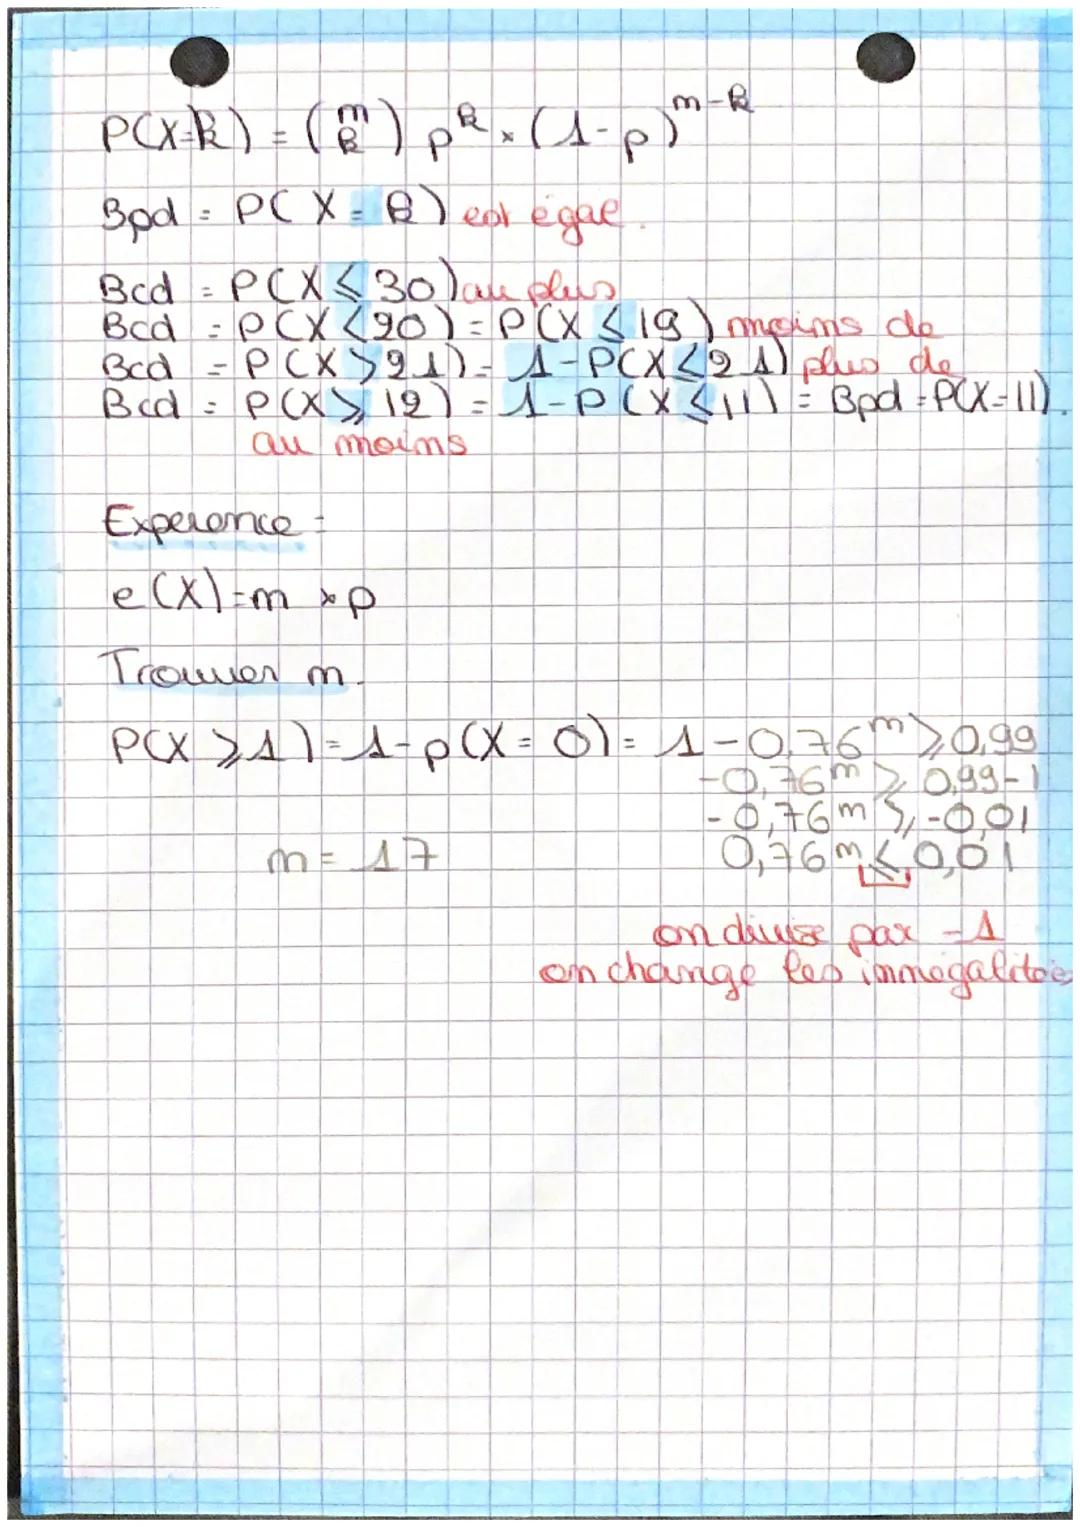 P(X=k) = (n k) p^k × (1-p)^n-k
Bpd = P(X = k) est égal.
Bcd = P(X ⩽ 30) au plus
Bcd = P(X < 20) = P(X ⩽ 19) moins de
Bcd = P(X > 21) = 1-P(X ⩽ 21) plus de
Bcd = P(X ⩾ 12) = 1-P(X ⩽ 11) = Bpd = P(X=11).
au moins
Experence =
e(X) = n × p
Trouver n.
P(X ⩾ 1) = 1-p(X = 0) = 1-0,76^n ⩾ 0,99
-0,76^n ⩾ 0,99-1
-0,76^n ⩾ -0,01
n = 17 0,76^n ⩽ 0,01
on divise par -1
on change les innégalitées